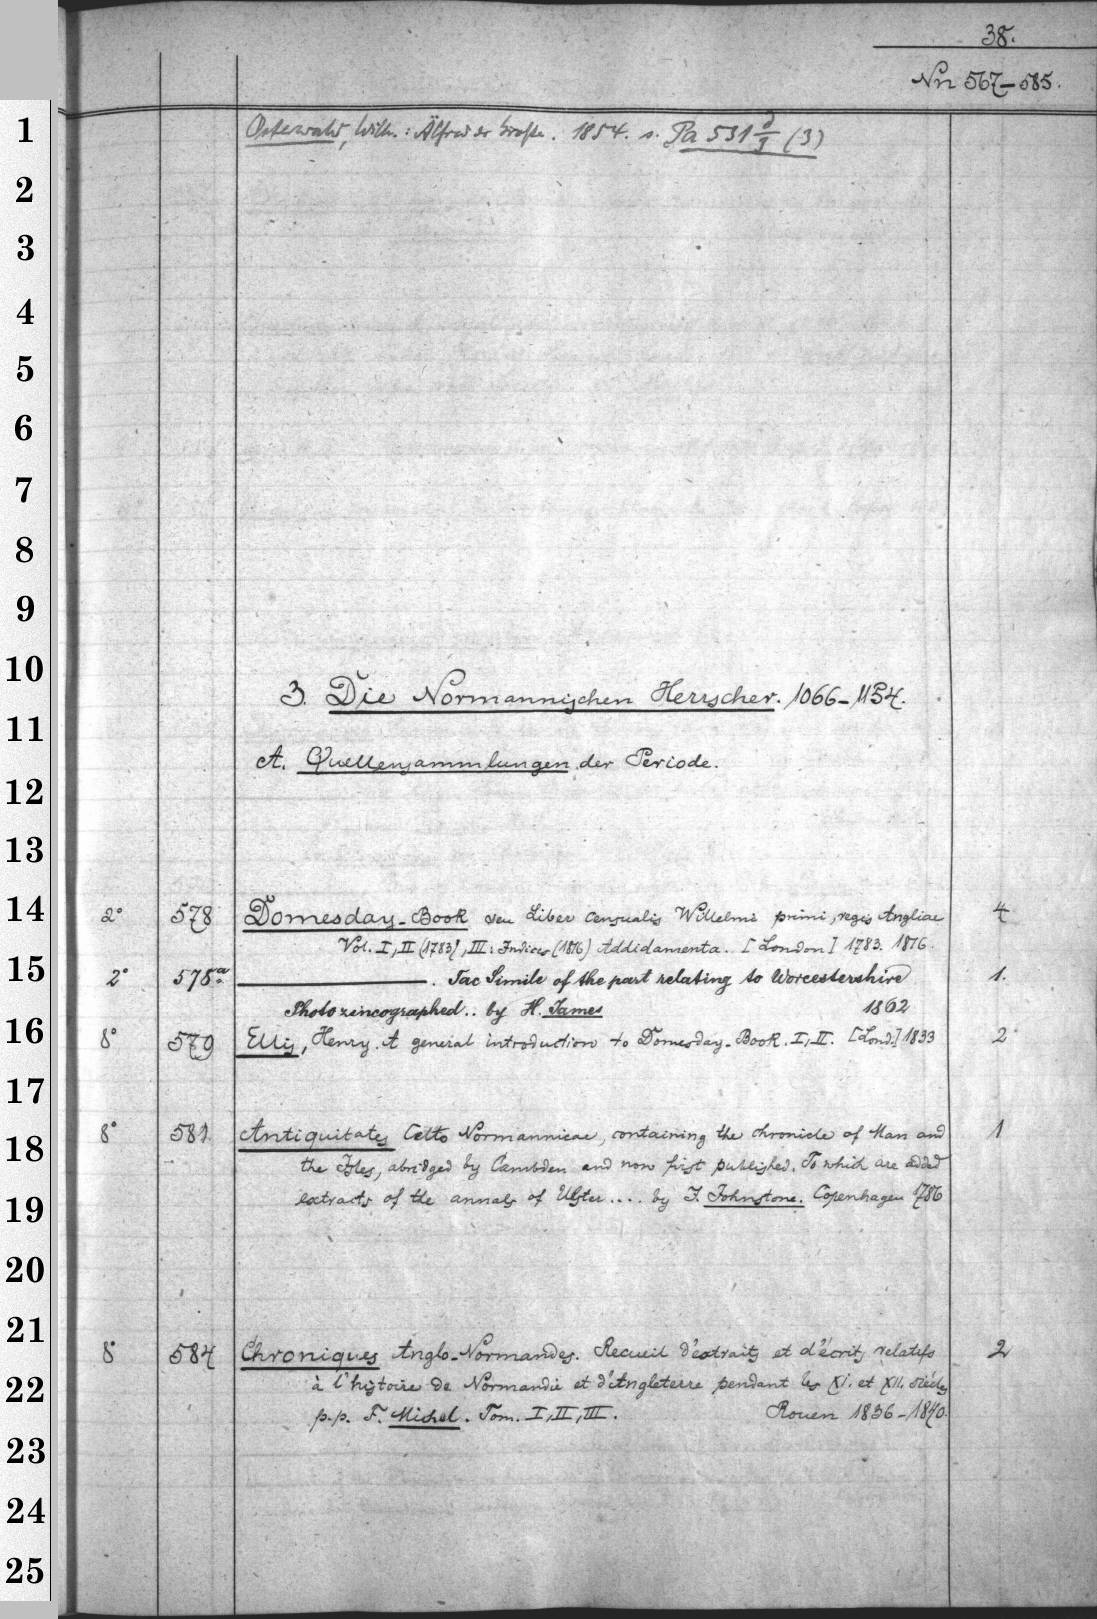 38.
Nrr 567-585.
Osterwald, Wilh.: Älfred der Große. 1854. s. Pa 531 d/3 (3)
3. Die Normannischen Herrscher. 1066-1154.
A. Quellensammlungen der Periode.
2° 578 Domesday-Book seu Liber Censualis Willelmi primi, regis Angliae 4
Vol. I, II (1783), III: Indices (1816) Addidamenta. [London] 1783. 1816.
2° 578a ——. Fac Simile of the part relating to Worcestershire 1.
Photozincographed.. by H. James 1862
8° 579 Ellis, Henry. A general introduction to Domesday-Book. I, II. [Lond.] 1833 2
8° 581 Antiquitates Celto Normannicae, containing the chronicle of Man and 1
the Isles, abridged by Cambden and now first published. To which are added
extracts of the annals of Ulster .... by J. Johnstone. Copenhagen 1786
8° 584 Chroniques Anglo-Normandes. Recueil d'extraits et d'écrits relatifs 2
à l'histoire de Normandie et d'Angleterre pendant les XI. et XII. siècles
p.p. F. Michel. Tom. I, II, III. Rouen 1836-1840.
1
2
3
4
5
6
7
8
9
10
11
12
13
14
15
16
17
18
19
20
21
22
23
24
25